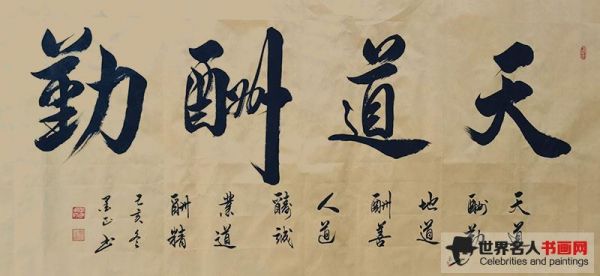 天道酬勤
天道
酬勤
地道
酬善
人道
醻誠
業道
酬精
己亥冬
世界名人书画网
Celebrities and paintings